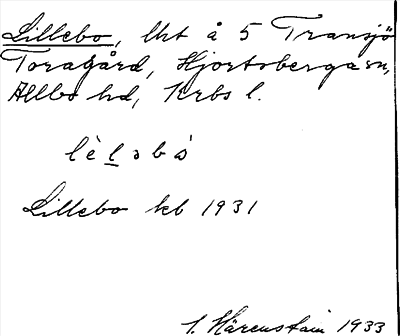 Lillebo, lht å 5 Transjö
Toragård, Hjortsberga sn,
Allbo hd, Krbs l.
lè l ə b ó
Lillebo kb 1931
1933